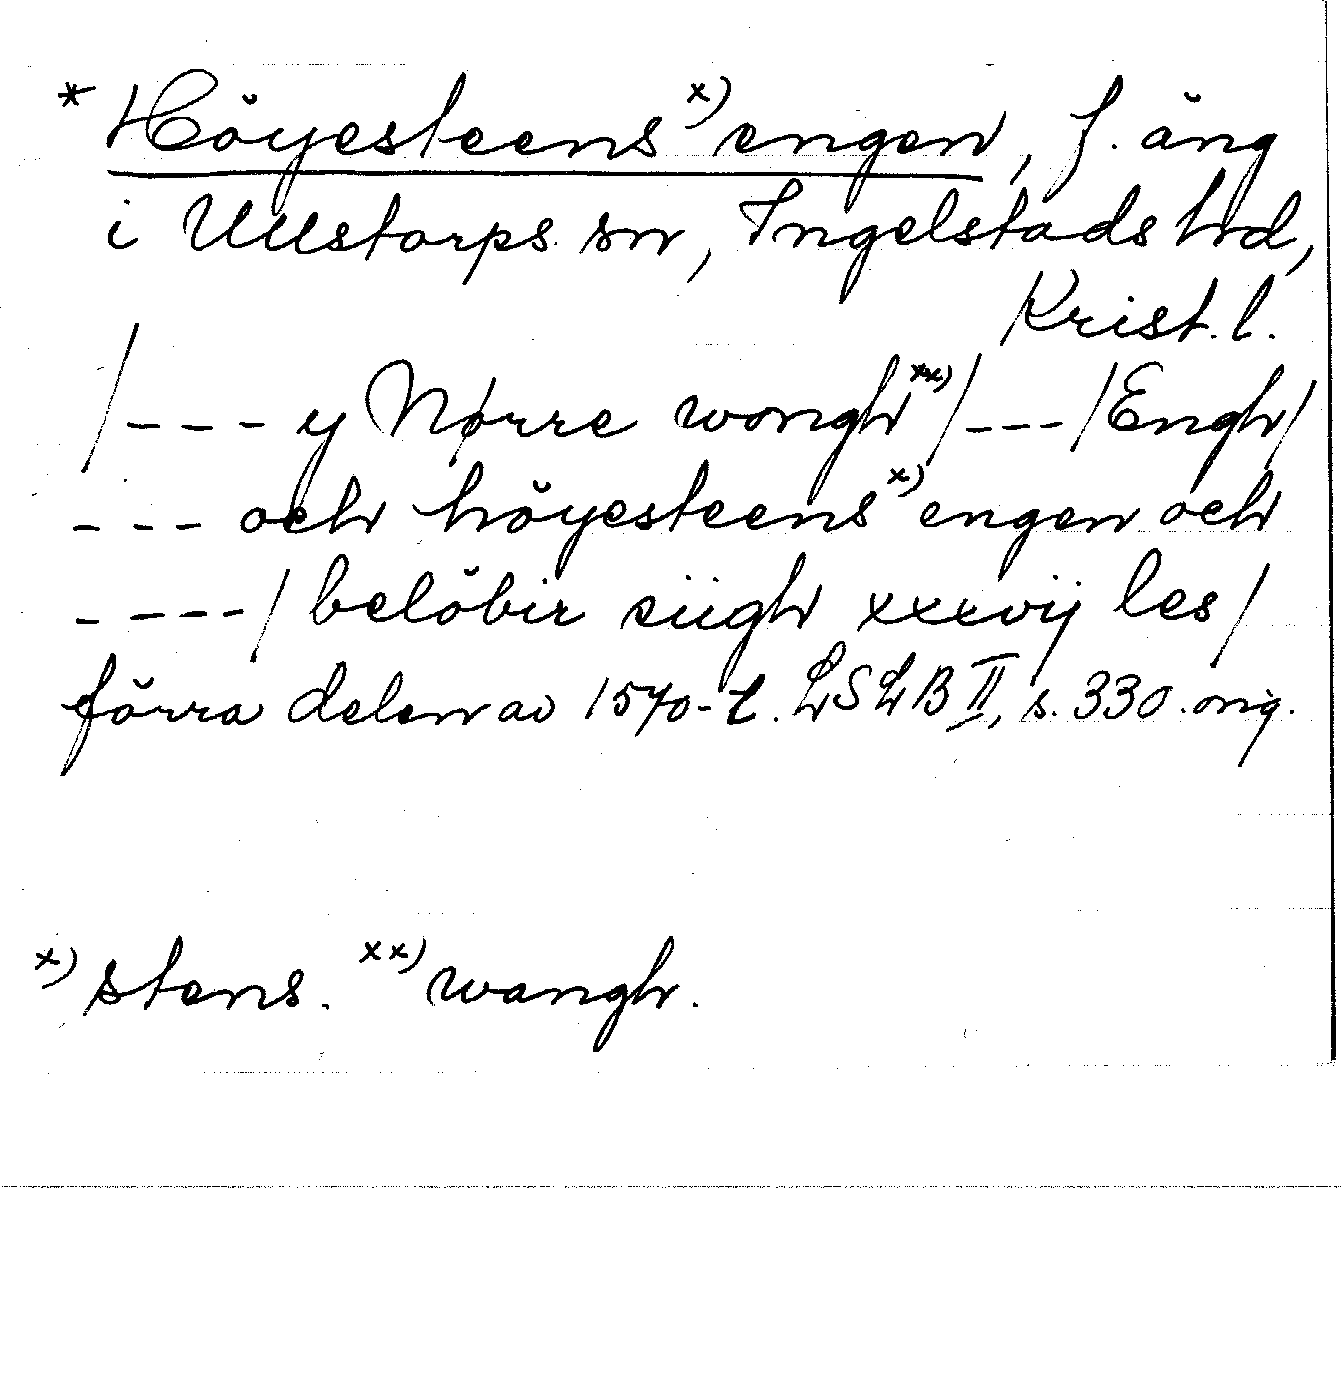 * Höyesteens x) engen, f. äng
i Ullstorps sn, Ingelstads hd,
Krist. l.
/--- y Nørre wongh xx) /---/Engh/
--- och höyesteens x) engen och
----/ belöbir siigh xxxvij les/
förra delen av 1570-t. LSLB II, s. 330. orig.
x) stens. xx) wangh.